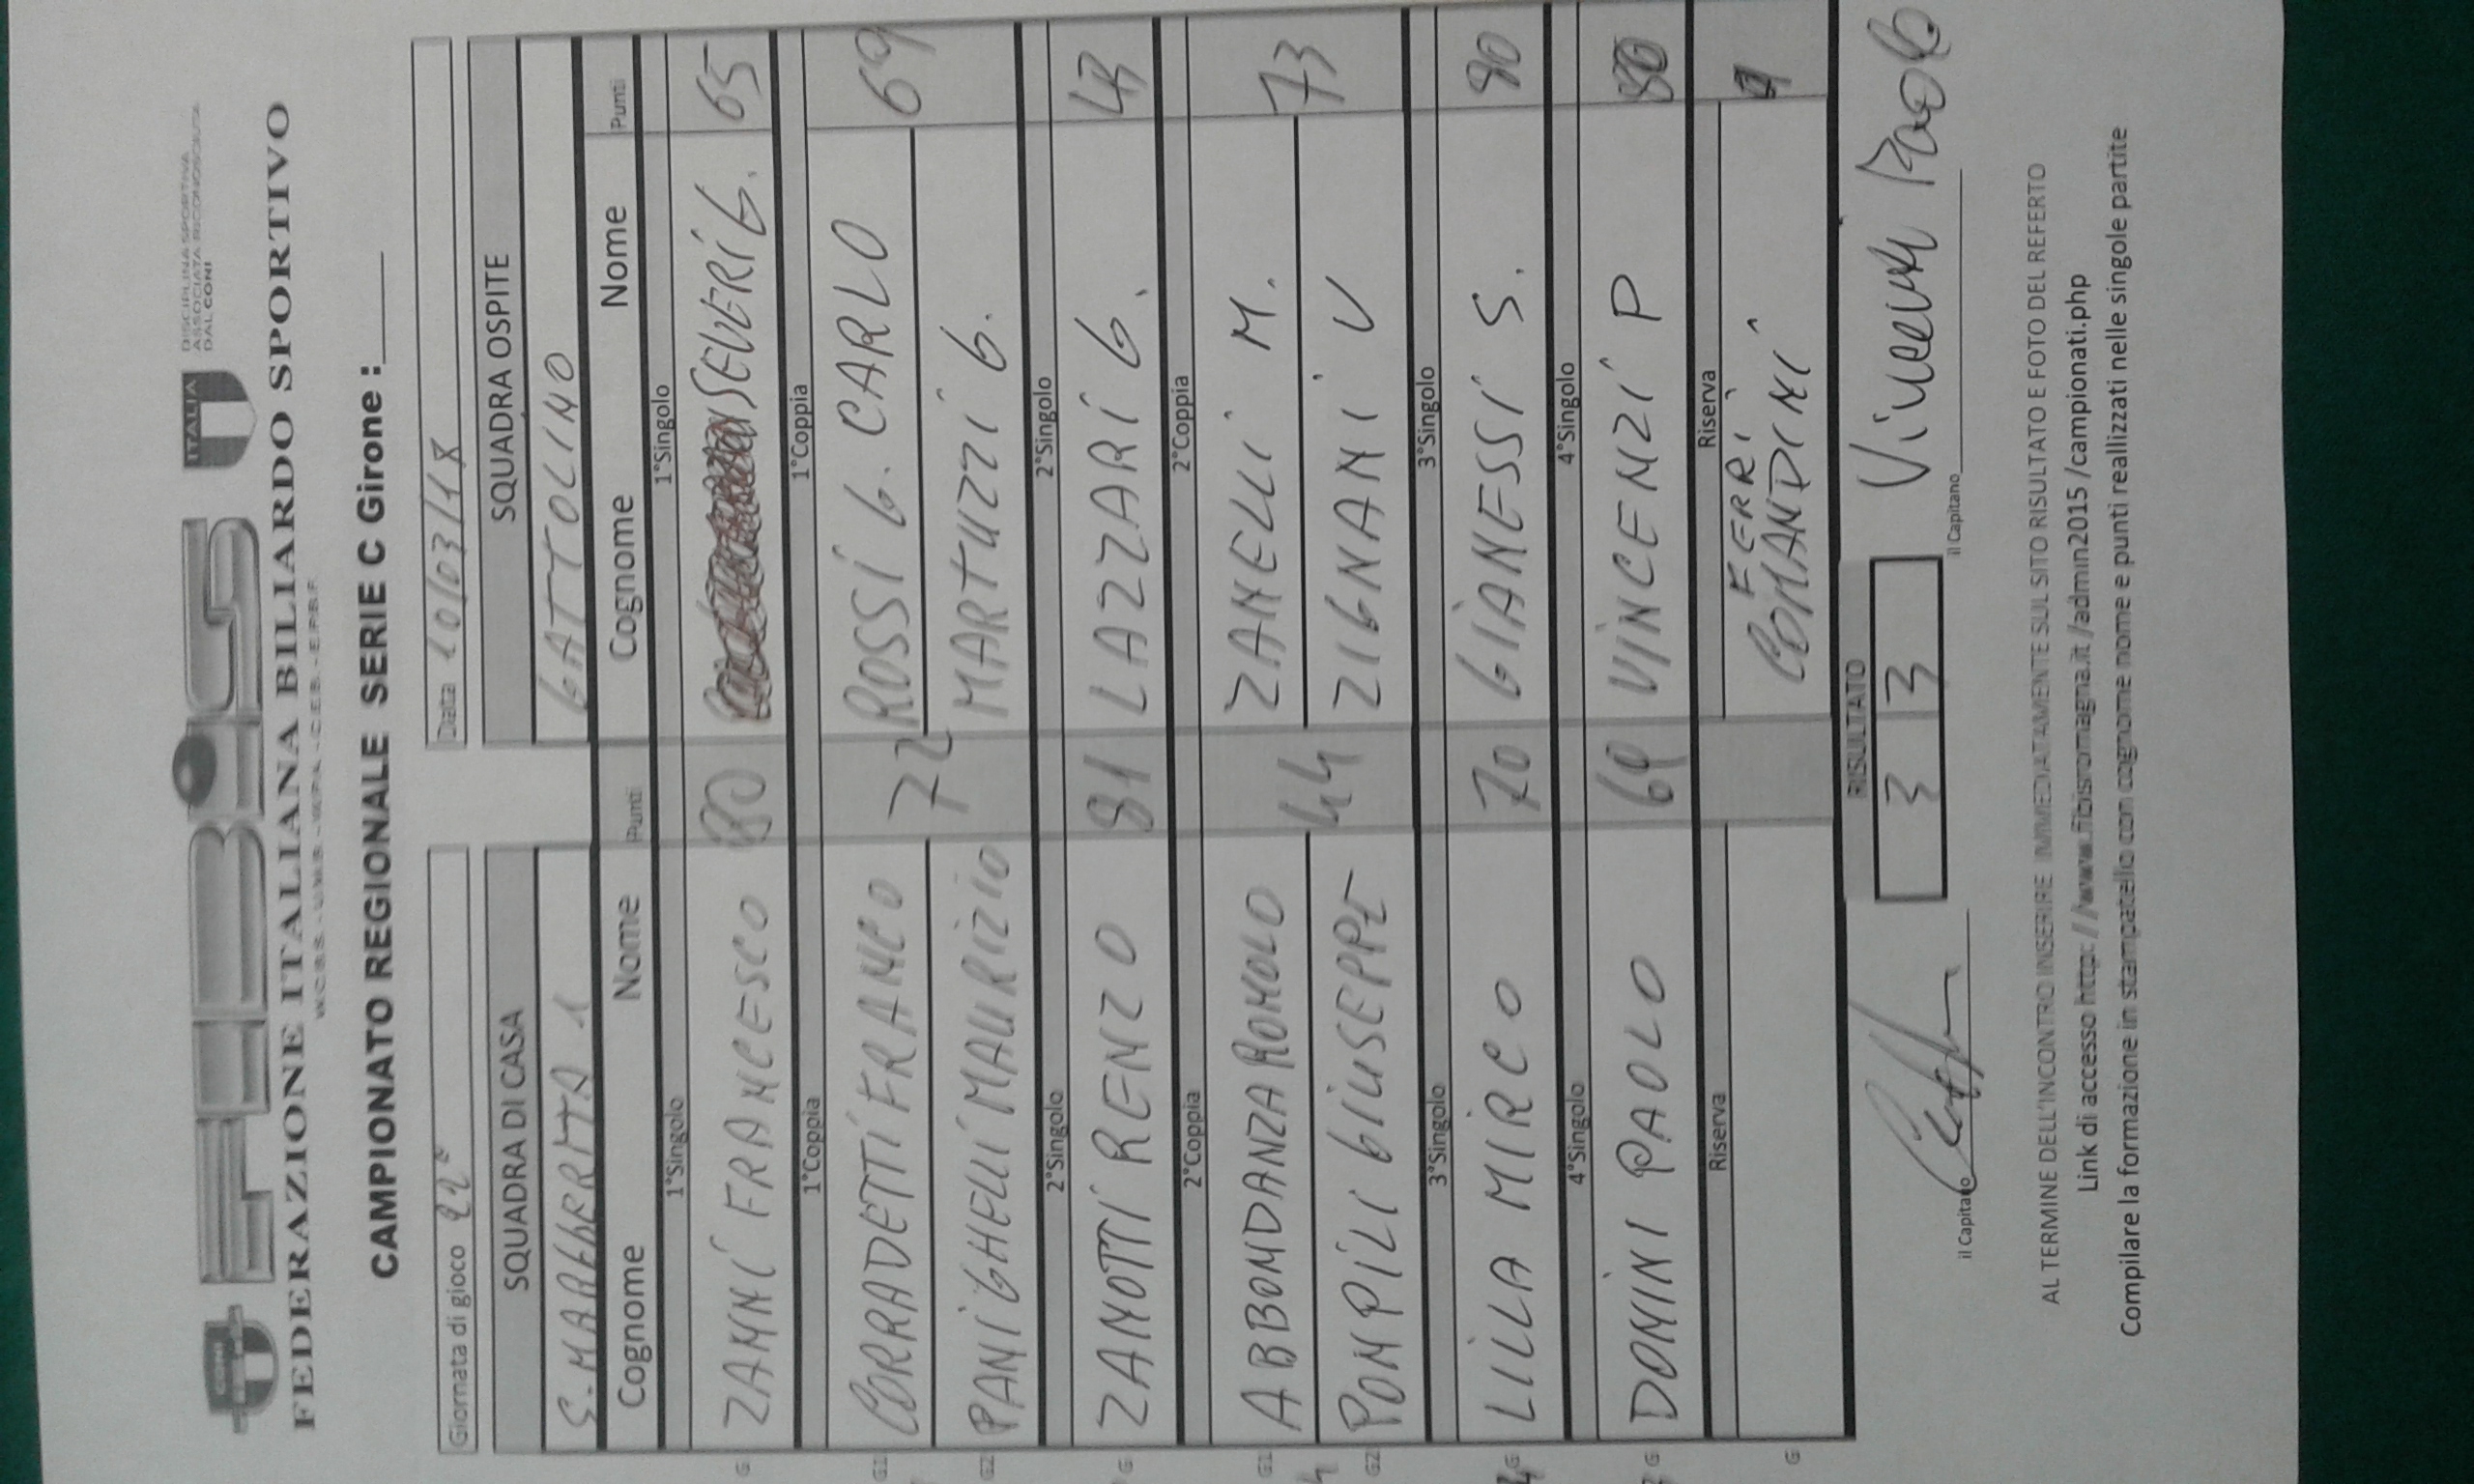 FIBiS
ITALIA
DISCIPLINA SPORTIVA
ASSOCIATA RICONOSCIUTA
DAL CONI
CONI
FEDERAZIONE ITALIANA BILIARDO SPORTIVO
CAMPIONATO REGIONALE SERIE C Girone :____
Giornata di gioco 22ª Data 20/03/18
SQUADRA DI CASA SQUADRA OSPITE
S. MARGHERITA 1 GATTOLINO
Cognome Nome Punti Cognome Nome Punti
1°Singolo 1°Singolo
G ZANNI FRANCESCO 80 SEVERI G. 65
1°Coppia 1°Coppia
G1 CORRADETTI FRANCO 72 ROSSI G. CARLO 69
G2 PANIGHELLI MAURIZIO MARTUZZI G.
2°Singolo 2°Singolo
G ZANOTTI RENZO 81 LAZZARI G. 43
2°Coppia 2°Coppia
G1 ABBONDANZA ROMOLO 44 ZANELLI M. 73
G2 POMPILI GIUSEPPE ZIGNANI V
3°Singolo 3°Singolo
G LILLA MIRCO 70 GIANESSI S. 80
4°Singolo 4°Singolo
G DONINI PAOLO 69 VINCENZI P 80
Riserva Riserva
FERRI
G COMANDINI
RISULTATO
3 3
il Capitano il Capitano Vincenzi Paolo
AL TERMINE DELL'INCONTRO INSERIRE IMMEDIATAMENTE SUL SITO RISULTATO E FOTO DEL REFERTO
Link di accesso http://www.fibisromagna.it/admin2015/campionati.php
Compilare la formazione in stampatello con cognome nome e punti reallizzati nelle singole partite